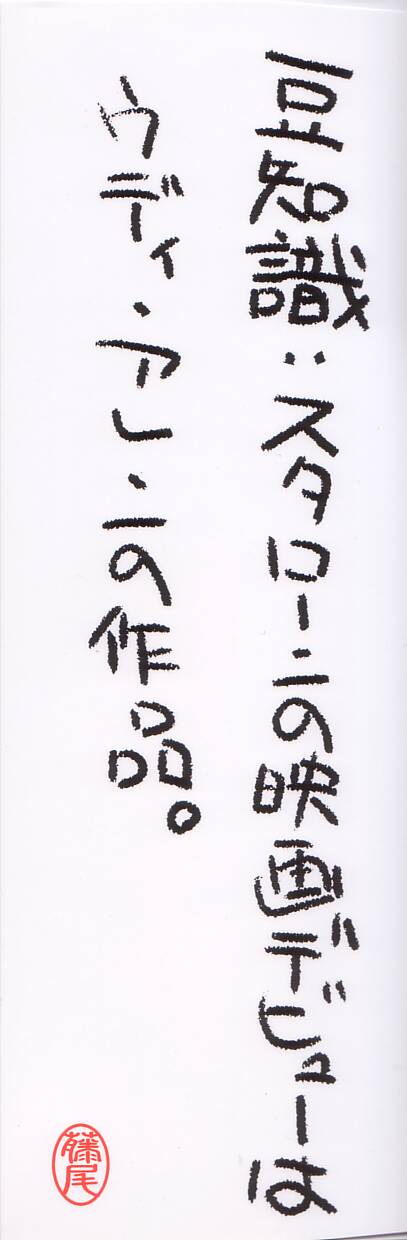 豆知識：スタローンの映画デビューは
ウディ・アレンの作品。
藤尾